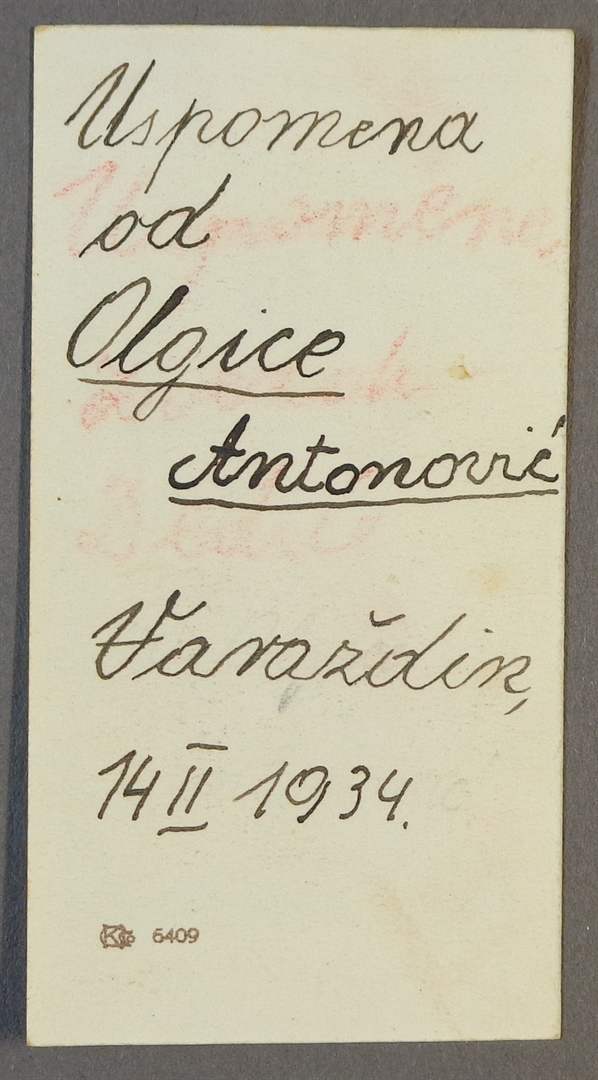 Uspomena
od
Olgice
Antonović
Varaždin,
14 II 1934.
6409